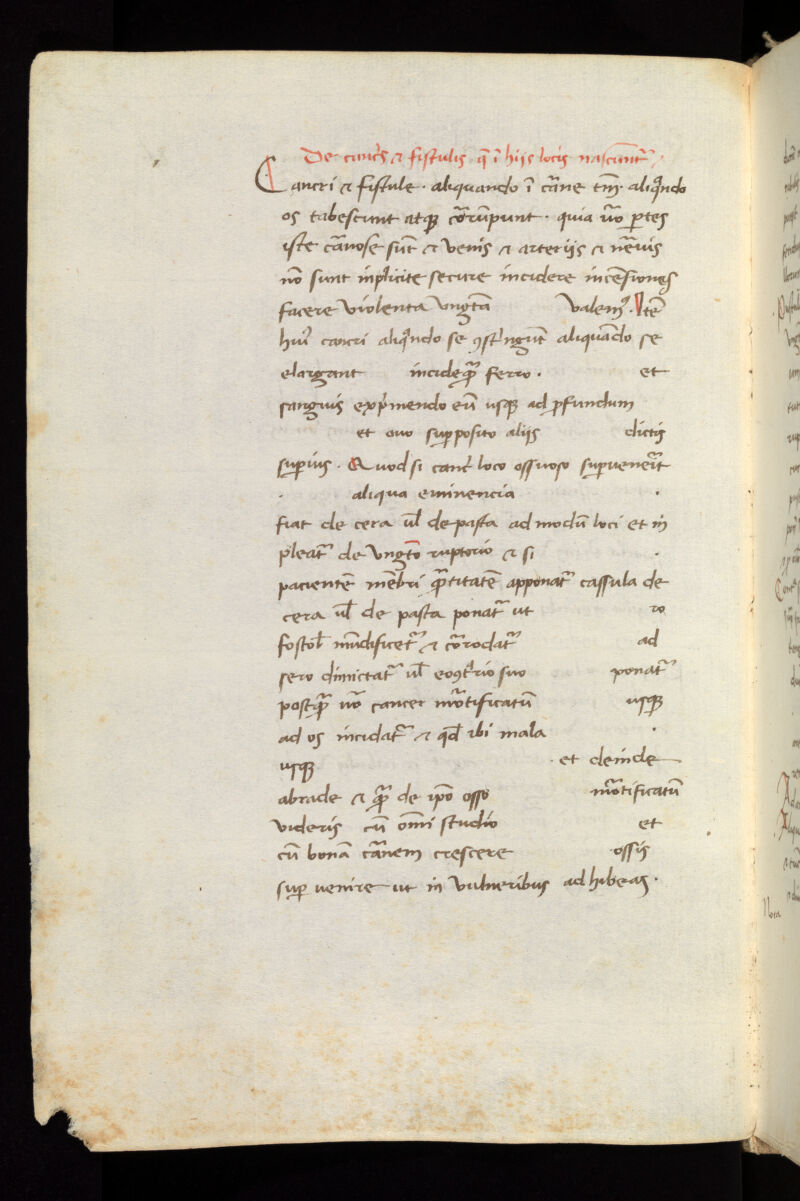 De cancris et fistulis q̄ ī hijs locis nascunt᷑
Cancri et fistule · aliquando ī carne tm̄ · aliqn̄do
os tabescunt atqꝫ corrūpunt · quia vͦo partes
iste carnose sūt et venis et arterijs et neruis
nō sunt inplicite secure incidere incensiones
facere violenta vngēta valemꝰ · Itē
huiꝰ cancri aliqn̄do se ꝯstringūt aliquādo se
elargant incide qꝫ ferro · et
sanguis exp̄mendo eū usqꝫ ad ꝓfundum
et ouo suꝑposito alijs dictis
suꝑius · Quod si canc̄ loco ossuoso suꝑuenerit
aliqua eminencia
fiat de cera ul̄ de pasta ad modū loci et in
pleat᷑ de vngēto ruptorio et si
pacientē mēbri q̄ntitatē apponat᷑ cassula de
cera ul̄ de pasta ponat᷑ ut ro
fostol̄ mūdificet᷑ et corrodat᷑ ad
sero dimictat᷑ ul̄ eoꝯt̄rio suo ponat᷑
postq̄ vͦo cancer mortificatū usqꝫ
ad os incidat᷑ et qd̄ ibi mala
usqꝫ · et deinde
abrade et q̄ de ip̄o osso mortificatū
videris cū om̄i studio et
cū bonā carnem crescere ossis
suꝑ uenire ut in vulneribus adhibeas ·